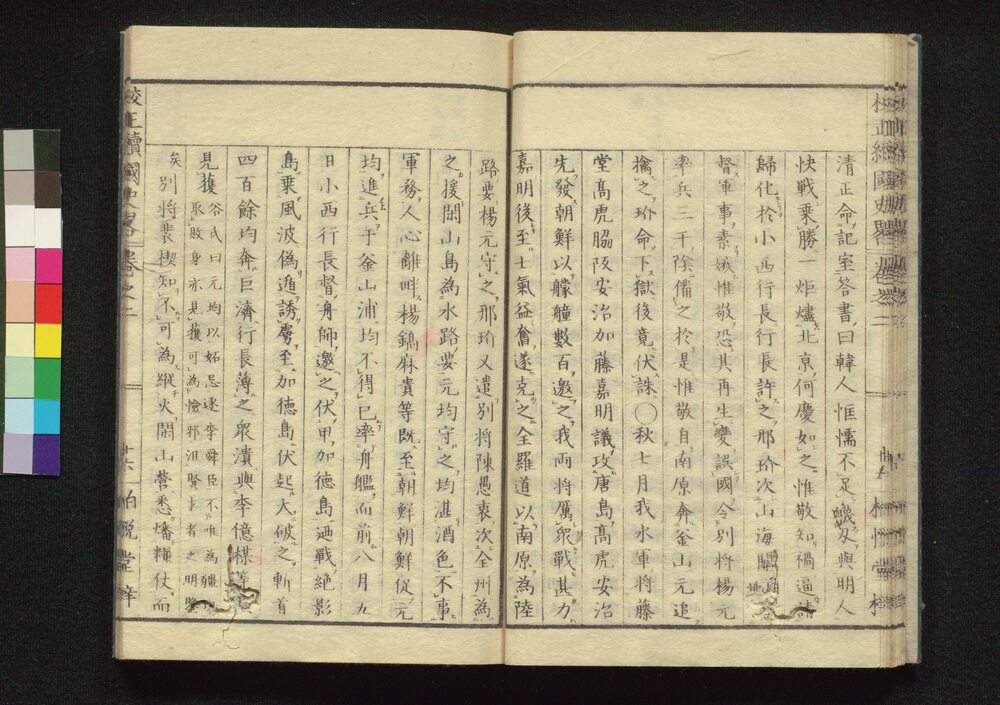 清正命記室答書曰韓人恇懦不足衊刄與明人
快戰乘勝一炬燼北京何慶如之惟敬知禍逼請
歸化於小西行長行長許之邢玠次山海關
督軍事素娍惟敬恐其再生變誤國令別將楊元
率兵三千陰備之於是惟敬自南原奔釜山元追
擒之玠命下獄後竟伏誅〇秋七月我水軍將藤
堂高虎脇阪安治加藤嘉明議攻唐島高虎安治
先發朝鮮以艨艟數百邀之我兩將厲衆戰甚力
嘉明後至士氣益奮遂克之全羅道以南原為陸
路要楊元守之邢玠又遣別將陳愚衷次全州為
之援閑山島為水路要元均守之均湛酒色不事
軍務人心離畔楊鎬麻貴等既至朝鮮朝鮮促元
均進兵于釜山浦均不得已率舟艦而前八月五
日小西行長督舟師邀之伏甲加德島迺戰絶影
島乘風波偽遁誘虜至加德島伏起大破之斬首
四百餘均奔巨濟行長薄之衆潰與李億祺等
見獲谷氏曰元均以妬忌逐李舜臣不唯為
取敗身亦見獲可為憸邪沮賢才者之明鑒
矣別將裴楔知不可為縱火閑山營悉燔糧仗而
校正續國史畧卷之二
柏悅堂梓